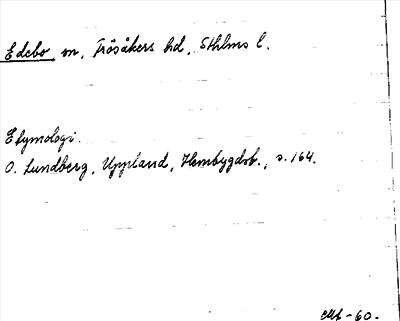 Edebo sn, Frösåkers hd, Sthlms l.
Etymologi.
O. Lundberg, Uppland, Hembygdsb., s. 164.
-60-